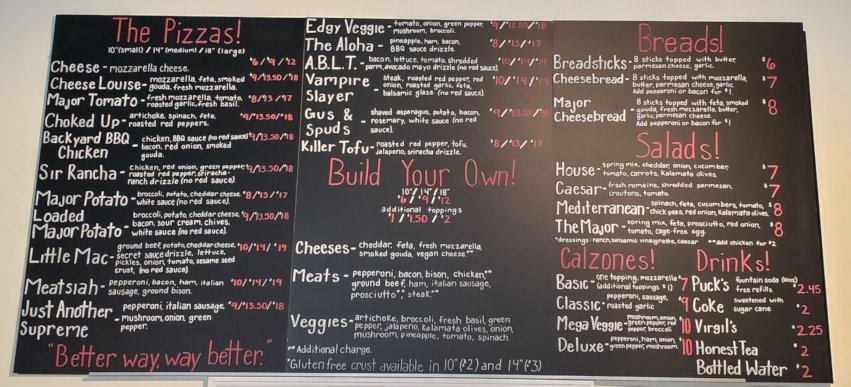 The Pizzas!
10"(small) / 14" (medium) / 18" (large)
$6 / $9 / $12
Cheese - mozzarella cheese.
Cheese Louise - mozzarella, feta, smoked $9/13.50/$18
gouda, fresh mozzarella.
Major Tomato - fresh mozzarella, tomato, $8/13/$17
roasted garlic, fresh basil.
Choked Up - artichoke, spinach, feta, $9/13.50/$18
roasted red peppers.
Backyard BBQ Chicken - chicken, BBQ sauce (no red sauce) $9/13.50/$18
bacon, red onion, smoked
gouda.
Sir Rancha - chicken, red onion, green pepper, $9/13.50/$18
roasted red pepper, sriracha-
ranch drizzle (no red sauce).
Major Potato - broccoli, potato, cheddar cheese, $8/$13/$17
white sauce (no red sauce).
Loaded Major Potato - broccoli, potato, cheddar cheese, $9/13.50/$18
bacon, sour cream, chives.
white sauce (no red sauce).
Little Mac - ground beef, potato, cheddar cheese, $10/$14/$19
secret sauce drizzle, lettuce,
pickles, onion, tomato, sesame seed
crust, (no red sauce).
Meatsiah - pepperoni, bacon, ham, italian $10/$14/$19
sausage, ground bison.
Just Another Supreme - pepperoni, italian sausage, $9/13.50/$18
mushroom, onion, green
pepper.
"Better way, way better."
Edgy Veggie - tomato, onion, green pepper, $9/13.50/$18
mushroom, broccoli.
The Aloha - pineapple, ham, bacon, $8/$13/$17
BBQ sauce drizzle.
A.B.L.T. - bacon, lettuce, tomato, shredded
parm, avocado mayo drizzle (no red sauce).
Vampire Slayer - steak, roasted red pepper, red
onion, roasted garlic, feta,
balsamic glaze (no red sauce).
Gus & Spuds - shaved asparagus, potato, bacon,
rosemary, white sauce (no red
sauce).
Killer Tofu - roasted red pepper, tofu, $8/$13/$17
jalapeno, sriracha drizzle.
Build Your Own!
10"/ 14"/ 18"
$6 / $9 / $12
additional toppings
$1 / 1.50 / $2
Cheeses - cheddar, feta, fresh mozzarella,
smoked gouda, vegan cheese.**
Meats - pepperoni, bacon, bison, chicken,**
ground beef, ham, italian sausage,
prosciutto**, steak.**
Veggies - artichoke, broccoli, fresh basil, green
pepper, jalapeno, kalamata olives, onion,
mushroom, pineapple, tomato, spinach.
**Additional charge.
*Gluten free crust available in 10"($2) and 14"($3)
Breads!
Breadsticks - 8 sticks topped with butter, $6
parmesan cheese, garlic.
Cheesebread - 8 sticks topped with mozzarella, $7
butter, parmesan cheese, garlic.
Add pepperoni or bacon for $1.
Major Cheesebread - 8 sticks topped with feta, smoked $8
gouda, fresh mozzarella, butter,
garlic, parmesan cheese.
Add pepperoni or bacon for $1
Salads!
House - spring mix, cheddar, onion, cucumber, $7
tomato, carrots, kalamata olives.
Caesar - fresh romaine, shredded parmesan, $7
croutons, tomato.
Mediterranean - spinach, feta, cucumbers, tomato, $8
chick peas, red onion, kalamata olives.
The Major - spring mix, feta, prosciutto, red onion, $8
tomato, cage-free egg.
*dressings: ranch, balsamic vinaigrette, caesar **add chicken for $2
Calzones!
Basic - one topping, mozzarella $7
(additional toppings $1)
Classic - pepperoni, sausage, $9
roasted garlic
Mega Veggie - mushroom, onion, $10
green pepper, red
pepper, broccoli
Deluxe - pepperoni, ham, onion, $10
green pepper, mushroom
Drinks!
Puck's fountain soda
free refills $2.45
Coke sweetened with $2
sugar cane
Virgil's $2.25
Honest Tea $2
Bottled Water $2